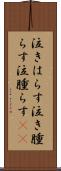 泣きはらす泣き腫
らす泣腫らす